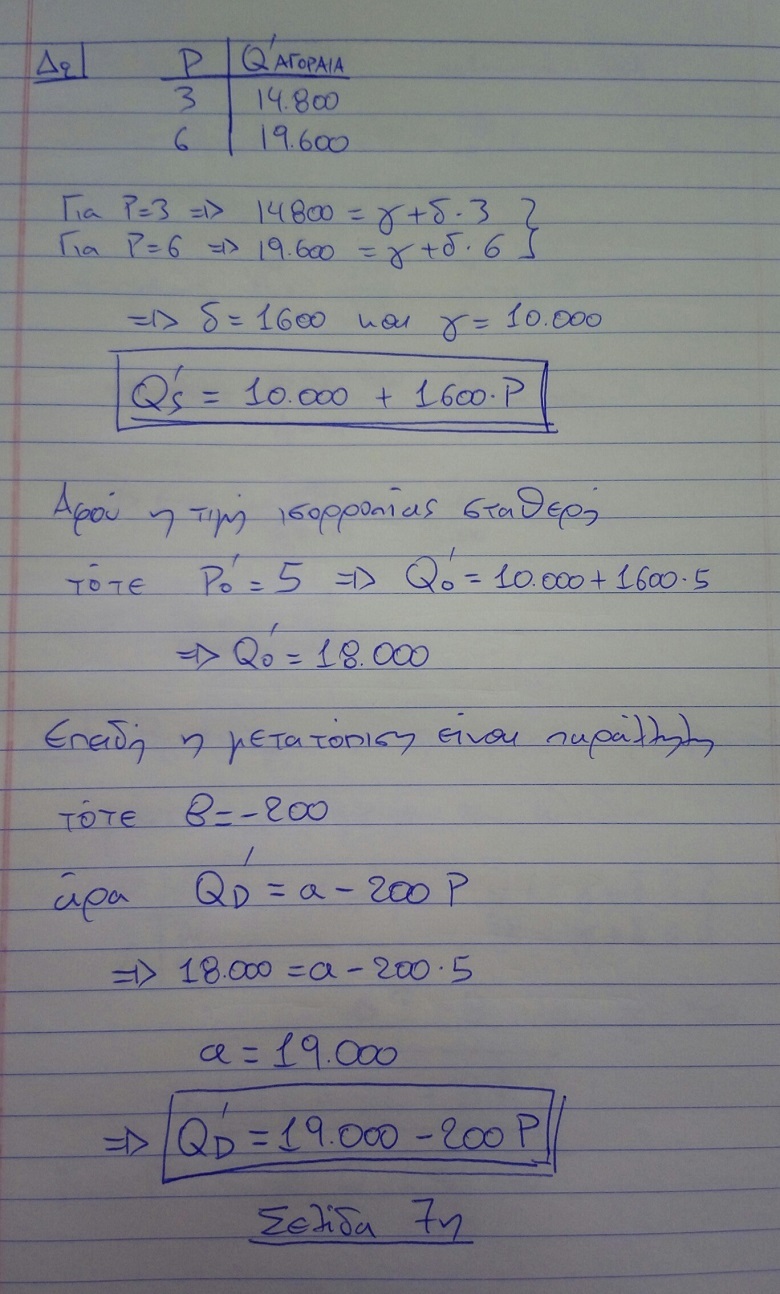 Δ2 P Q' ΑΓΟΡΑΙΑ
3 14.800
6 19.600
Για P=3 => 14800 = γ+δ·3 }
Για P=6 => 19.600 = γ+δ·6 }
=> δ=1600 και γ= 10.000
Q's = 10.000 + 1600·P
Αφού η τιμή ισορροπίας σταθερή
τότε Po' = 5 => Qo' = 10.000 + 1600·5
=> Qo' = 18.000
Επειδή η μετατόπιση είναι παράλληλη
τότε β=-200
άρα QD' = α - 200 P
=> 18.000 = α - 200·5
α = 19.000
=> QD' = 19.000 - 200 P
Σελίδα 7η